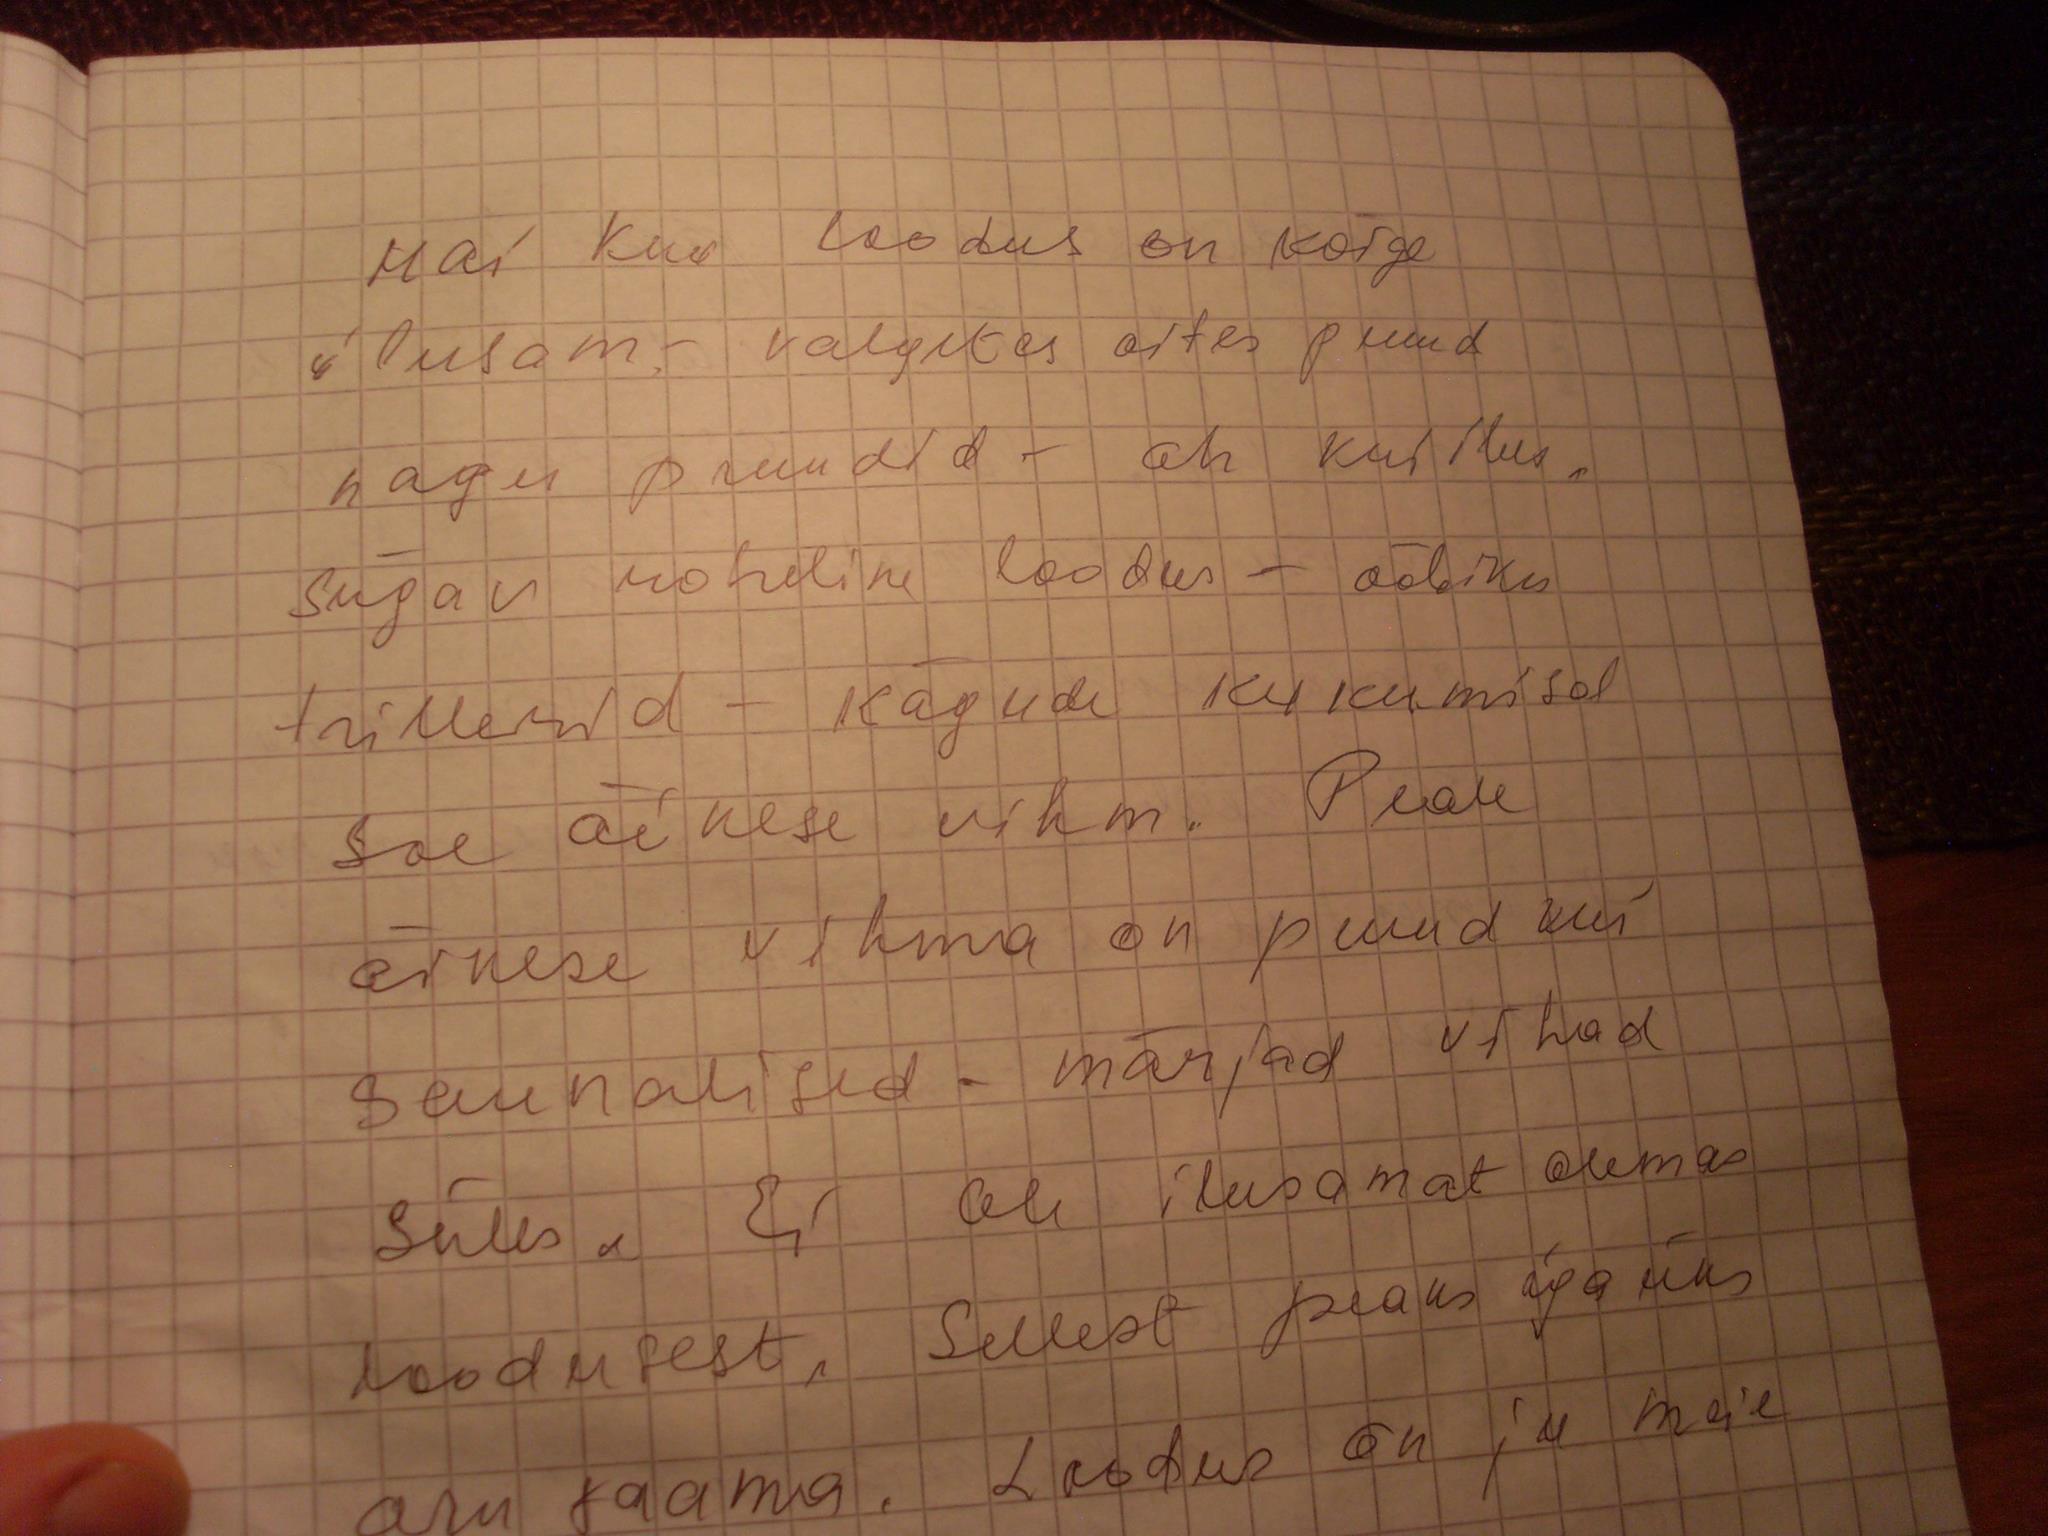 Mai kuu loodus on kõige
ilusam. - valgetes õites puud
nagu pruudid - oh kui ilus.
Sügav roheline loodus - ööbiku
trillerid - kägude kukumisel
soe äikese vihm. Peale
äikese vihma on puud kui
saunalised - märjad vihad
süles. Ei ole ilusamat olemas
loodusest. Sellest peaks igaüks
aru saama. Loodus on ju meie